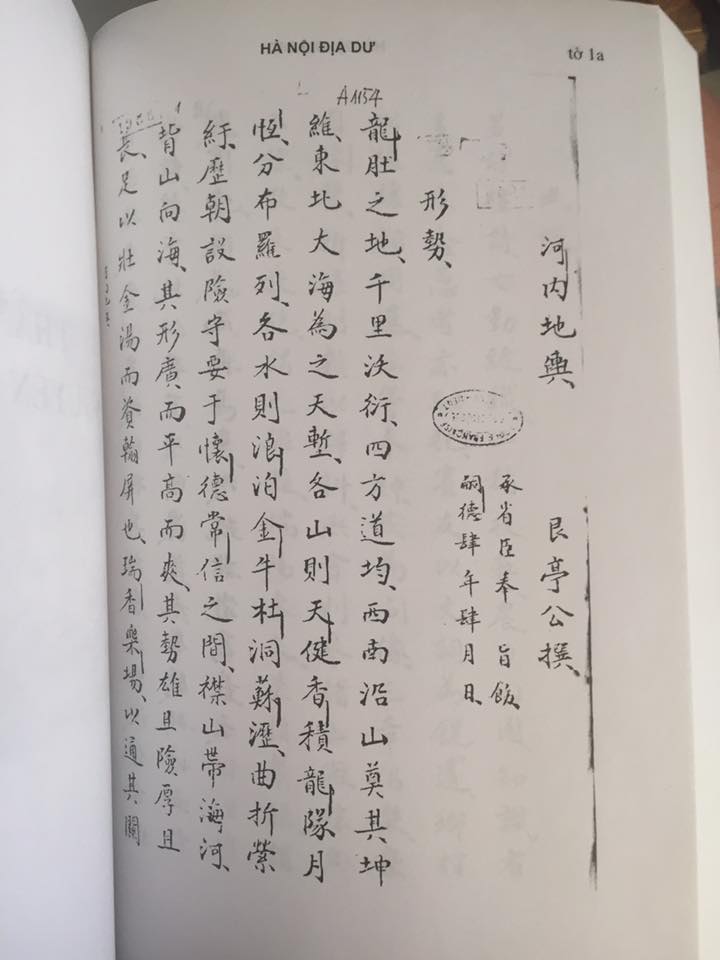 HÀ NỘI ĐỊA DƯ
tờ 1a
A1154
河内地輿 艮亭公撰
承省臣奉 旨飭
嗣德肆年肆月日
形勢
龍肚之地千里沃衍四方道均西南沿山奠其坤
維東北大海為之天塹各山則天健香積龍隊月
恆分布羅列各水則浪泊金牛杜洞蘇瀝曲折縈
紆歷朝設險守要于懷德常信之間襟山帶海河
背山向海其形廣而平高而爽其勢雄且險厚且
長足以壯金湯而資翰屏也瑞香樂場以通其關